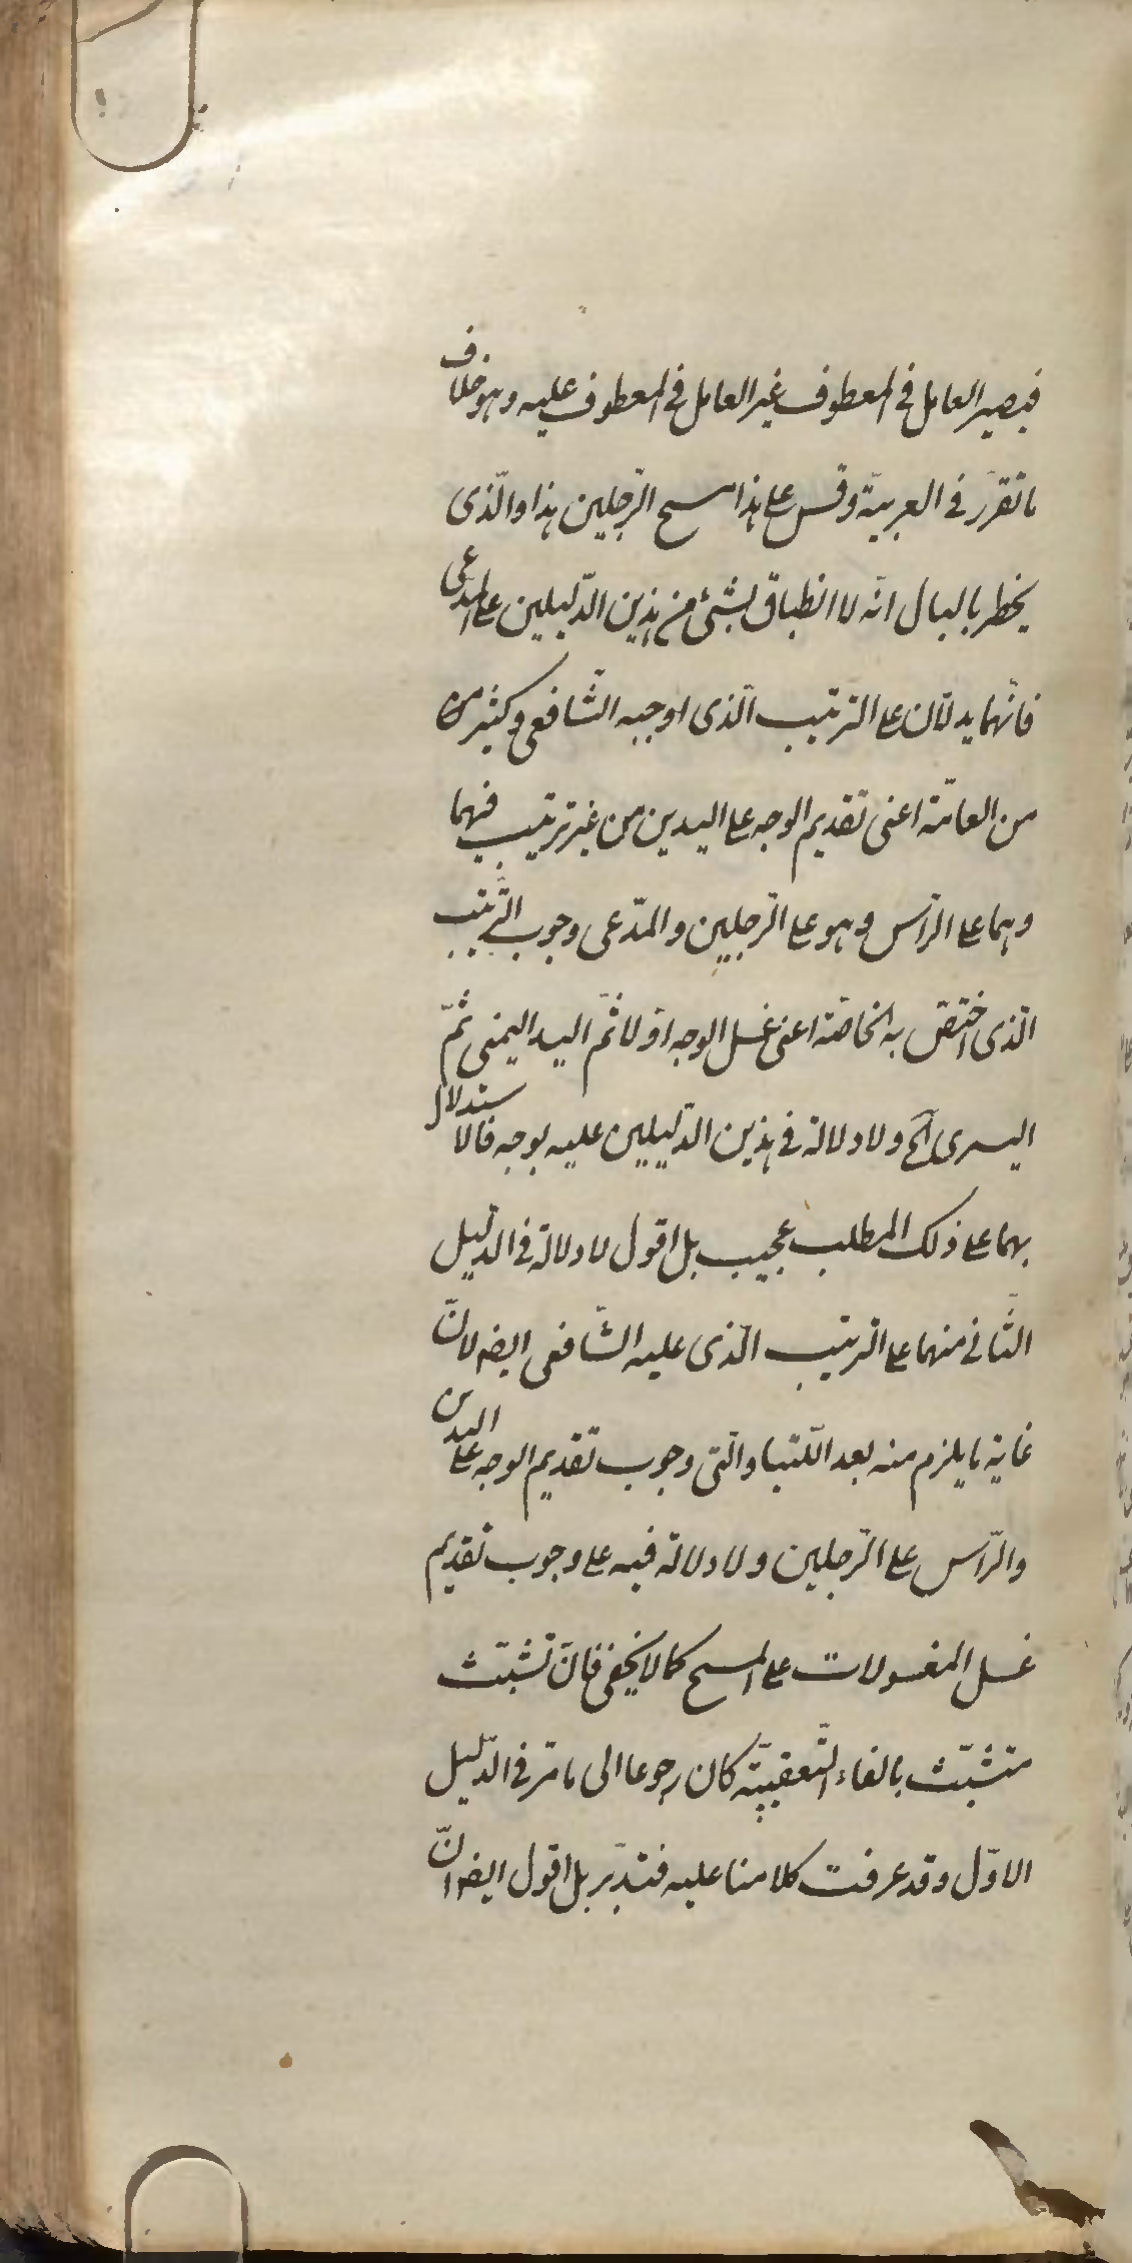 فيصير العامل فى المعطوف غير العامل فى المعطوف عليه وهو خلاف
ما تقرّر فى العربيّة وقس على هذا مسح الرّجلين هذا والّذى
يخطر بالبال انّه لا انطباق لشئ من هذين الدّليلين على المدّعى
فانّهما يدلّان على الترتيب الّذى اوجبه الشّافعى وكثير من
من العامّة اعنى تقديم الوجه على اليدين من غير ترتيب فيهما
وهما على الرّأس وهو على الرّجلين والمدّعى وجوب التّرتيب
الّذى اختصّ به الخاصّة اعنى غسل الوجه اوّلا ثمّ اليد اليمنى ثمّ
اليسرى آلخ ولا دلالة فى هذين الدّليلين عليه بوجه فالاستدلال
بهما على ذلك المطلب عجيب بل اقول لا دلالة فى الدّليل
الثّانى منهما على الترتيب الّذى عليه الشّافعى ايضا لانّ
غاية ما يلزم منه بعد اللّتيا والّتى وجوب تقديم الوجه على اليدين
والرّأس على الرّجلين ولا دلالة فيه على وجوب تقديم
غسل المغسولات على المسح كما لا يخفى فان تشبّث
متشبّث بالفاء التّعقيبيّة كان رجوعا الى ما مرّ فى الدّليل
الاوّل وقد عرفت كلامنا عليه فتدبّر بل اقول ايضا انّ